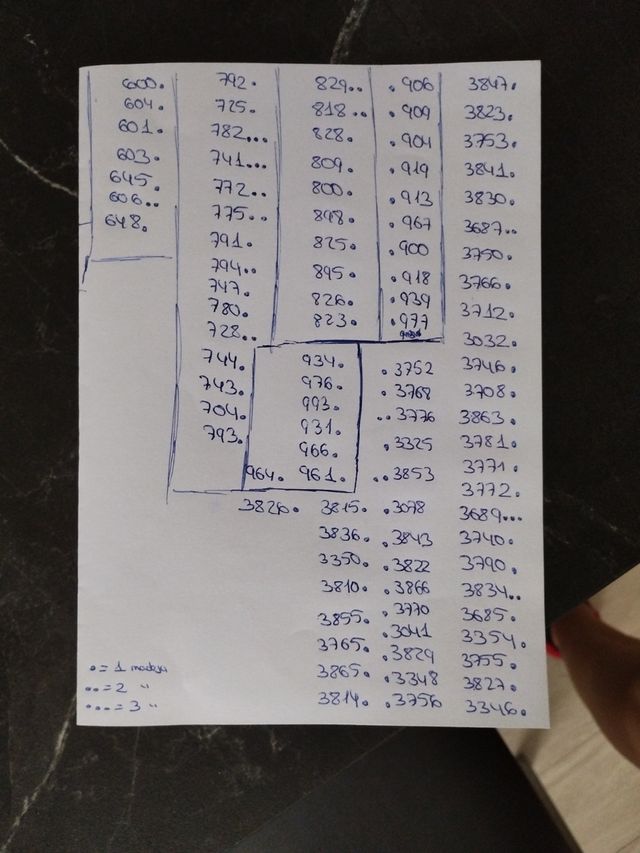 600.
604.
601.
603.
645.
606..
648.
792.
725.
782...
741...
772..
775..
791.
794..
747.
780.
728..
744.
743.
704.
793.
829..
818..
828.
809.
800.
898.
825.
895.
826.
823.
.906
.909
.904
.919
.913
.967
.900
.918
.939
.977
934.
976.
993.
931.
966.
964. 961.
3826. 3815.
3836.
3350.
3810.
3855.
3765.
3865.
3814.
.3752
.3768
..3776
.3325
..3853
.3078
.3843
.3822
.3866
.3770
.3041
.3829
.3348
.3756
3847.
3823.
3753.
3841.
3830.
3687..
3750.
3766.
3712.
3032.
3746.
3708.
3863.
3781.
3771.
3772.
3689...
3740.
3790.
3834..
3685.
3354.
3755.
3827.
3346.
. = 1 madeja
.. = 2 "
... = 3 "